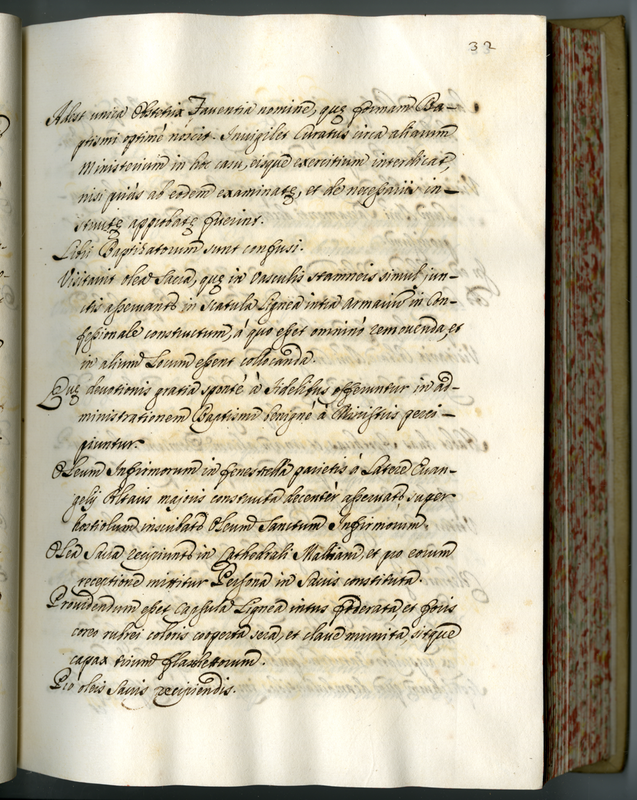 32
Adest unica Obstetrix Faventia nomine, quę formam Ba-
ptismi optimè noscit. Invigilet Curatus circa aliarum
Ministerium in hoc casu, eisque exercitium interdicat,
nisi priùs ab eodem examinatę, et de necessariis in-
structę approbatę fuerint.
Libri Baptizatorum sunt confusi.
Visitavit olea Sacra, quę in Vasculis stamneis simul iun-
ctis asservantr in scatula Lignea intra armarium in Con-
fessionale constructum, à quo esset omninò removenda, et
in alium Locum essent collocanda.
Quę devotionis gratia spontè a Fidelibus offeruntur in ad-
ministrationem Baptismi benignè à Ministris perci-
piuntur.
Oleum Infirmorum in fenestella parietis à Latere Evan-
gelij Altaris majoris constructa decentèr asservatr super
hostiolum insculptr Oleum Sanctum Infirmorum.
Olea Sacra recipiuntr in Cathedrali Mariana, et pro eorum
receptione mittitur Persona in Sacris constituta.
Providendum esset Capsula Lignea intus foderata, et foris
coreo rubei coloris cooperta, sera, et clave munita, sitque
capax trium flasletorum.
Pro oleis Sacris recipiendis.